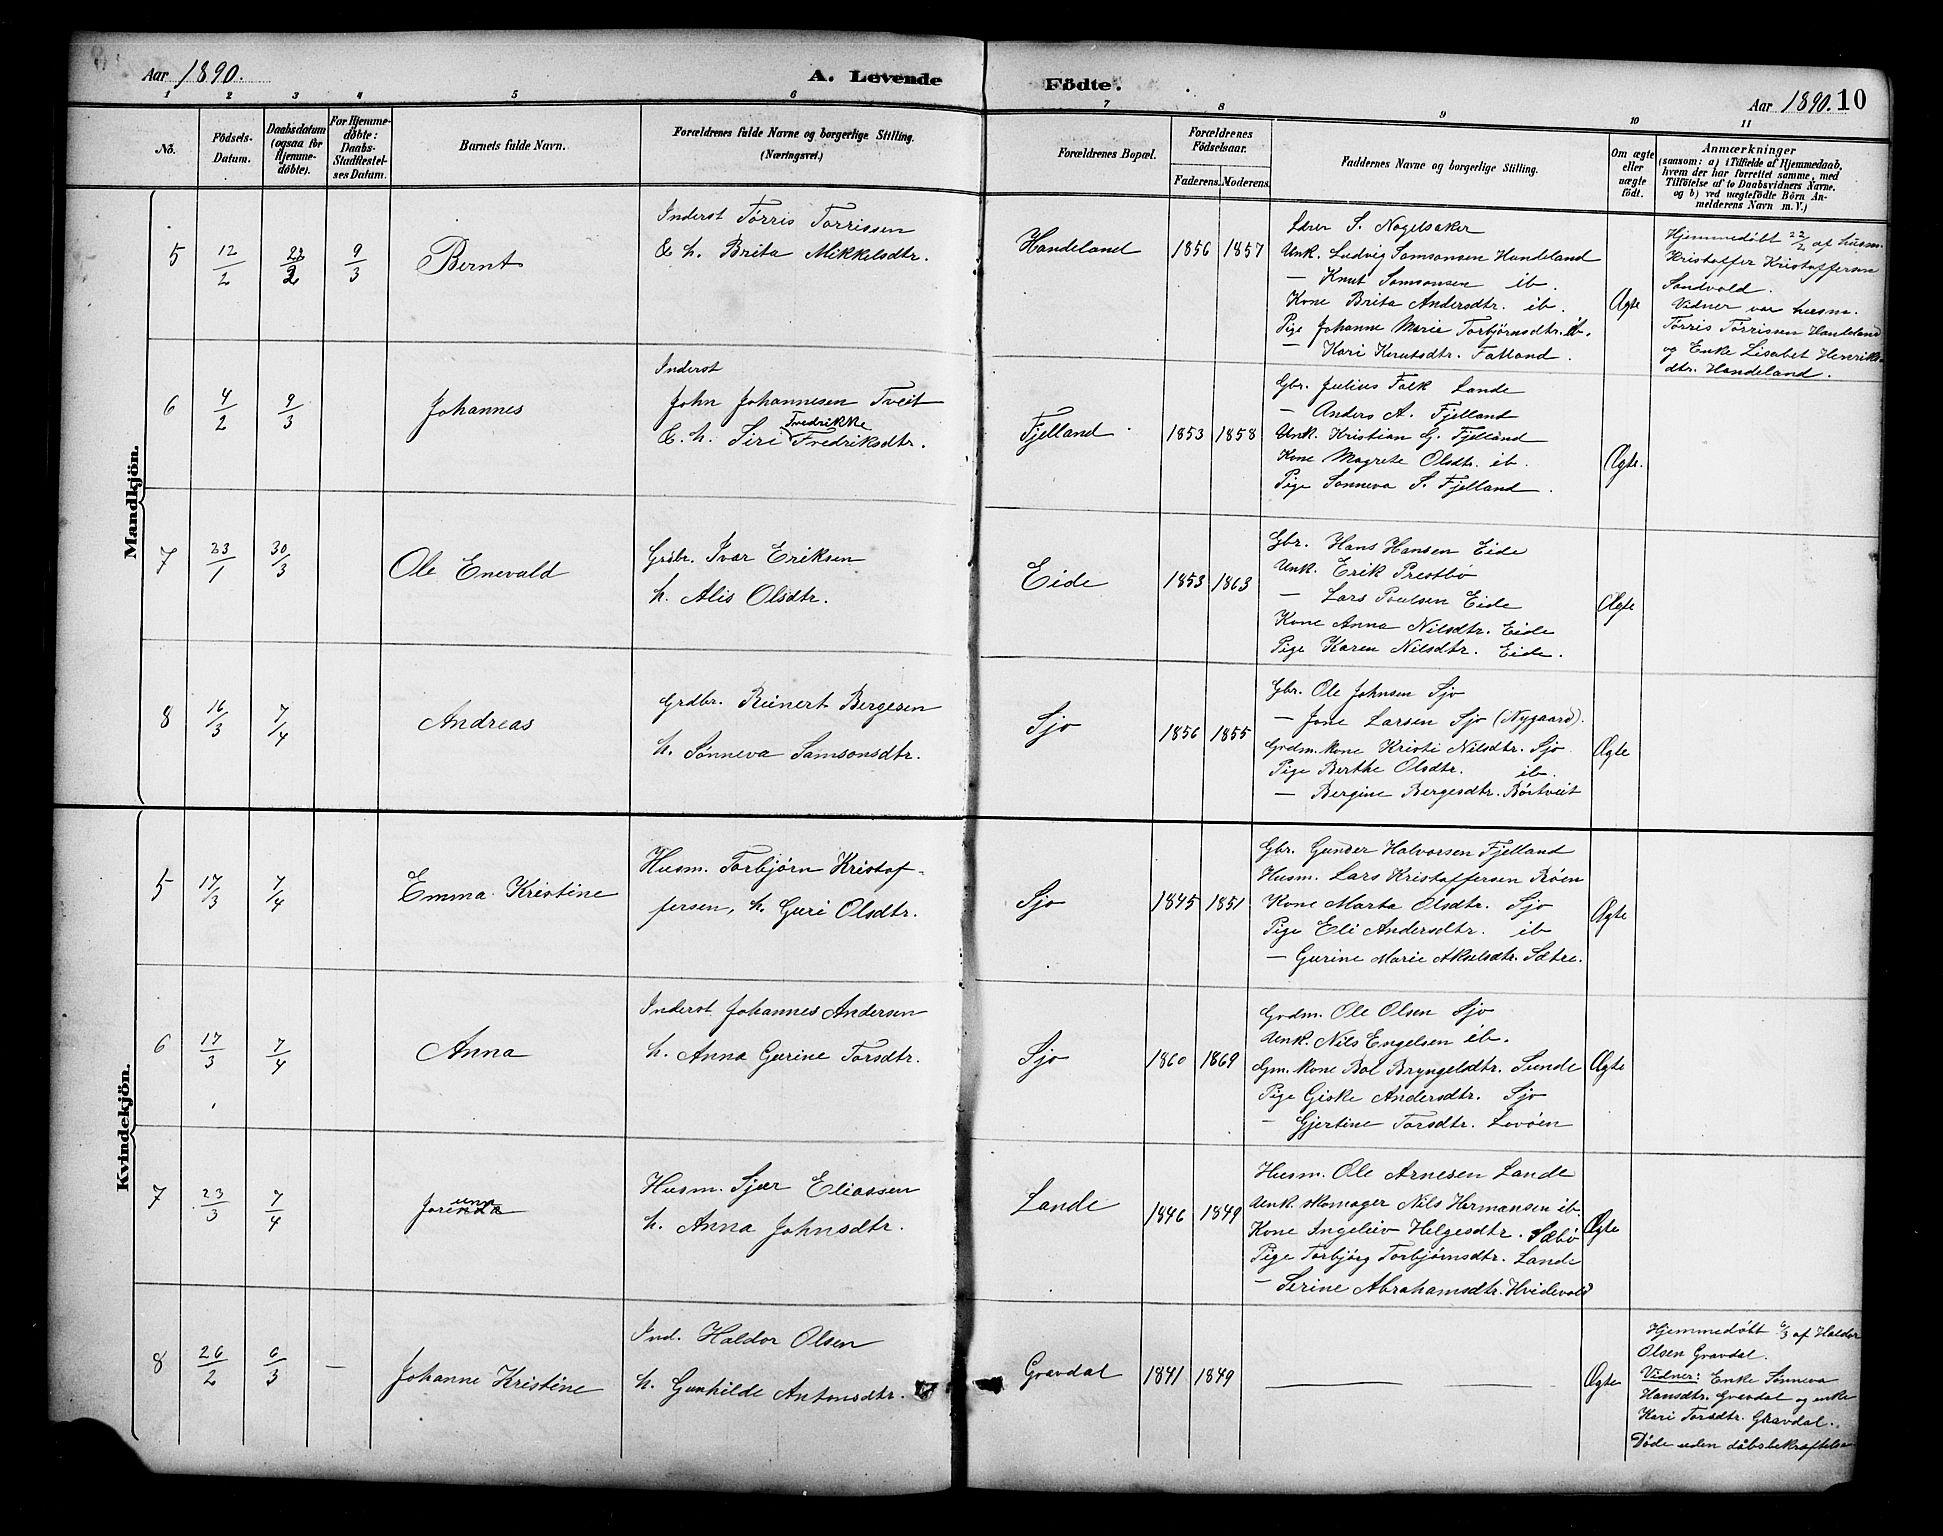 Aar 1890.
A. Levende
Födte.
Aar 1890. 10
1 2 3 4 5 6 7 8 9 10 11
No.
Födsels-
Datum.
Daabsdatum
(ogsaa for
Hjemme-
døbte).
For Hjemme-
døbte:
Daabs-
Stadfæstel-
ses Datum.
Barnets fulde Navn.
Forældrenes fulde Navne og borgerlige Stilling.
(Næringsvei.)
Forældrenes Bopæl.
Forældrenes
Födselsaar.
Faderens. Moderens.
Faddernes Navne og borgerlige Stilling.
Om ægte
eller
uægte
født.
Anmærkninger
(saasom: a) i Tilfælde af Hjemmedaab,
hvem der har forrettet samme, med
Tilföielse af to Daabsvidners Navne.
og b) ved uægtefödte Börn An-
melderens Navn m. V.)
Mandkjön.
5 12/2 22/2 9/3 Bernt
Inderst Tørris Torrissen
E. h. Brita Mikkelsdtr.
Handeland 1856 1857
Lærer S. Nagelsaker
Unk. Ludvig Samsonsen Handeland
— Knut Samsonsen ib.
Kone Brita Andersdtr. ib.
Pige Johanne Marie Torbjørnsdtr. ib.
— Kari Knutsdtr. Fatland.
Ægte
Hjemmedøbt 22/2 af husm.
Kristoffer Kristoffersen
Sandvold.
Vidner var husm.
Tørris Tørrissen Handeland
og Enke Lisabet Henriks-
dtr. Handeland.
6 4/2 9/3 Johannes
Inderst
John Johannesen Tveit
Fredrikke
E. h. Siri Fredriksdtr.
Fjelland 1853 1858
Gbr. Julius Falk Lande
— Anders A. Fjelland
Unk. Kristian G. Fjelland
Kone Magrete Olsdtr. ib.
Pige Sonneva S. Fjelland.
Ægte.
7 23/1 30/3 Ole Enevald
Grdbr. Ivar Eriksen
h. Alis Olsdtr.
Eide 1853 1863
Gbr. Hans Hansen Eide
Unk. Erik Prestbø
— Lars Poulsen Eide
Kone Anna Nilsdtr. Eide
Pige Karen Nilsdtr. Eide.
Ægte
8 16/3 7/4 Andreas
Grdbr. Reinert Bergesen
h. Sønneva Samsonsdtr.
Sjo 1856 1855
Gbr. Ole Johnsen Sjo
— Jone Larsen Sjo (Nygaard).
Grdm. kone Kristi Nilsdtr. Sjo
Pige Berthe Olsdtr. ib.
— Bergine Bergesdtr. Børtveit
Ægte
Kvindekjön.
5 17/3 7/4 Emma Kristine
Husm. Torbjørn Kristof-
fersen, h. Guri Olsdtr.
Sjo 1845 1851
Gbr. Gunder Halvorsen Fjelland
Husm. Lars Kristoffersen Røen
Kone Marta Olsdtr. Sjo
Pige Eli Andersdtr. ib
— Gurine Marie Akselsdtr. Sætre.
Ægte
6 17/3 7/4 Anna
Inderst Johannes Andersen
h. Anna Gurine Torsdtr.
Sjo 1860 1869
Grdm. Ole Olsen Sjo
Unk. Nils Engelsen ib.
Gm. kone Bol Bryngeldtr. Sunde
Pige Giske Andersdtr. Sjo
— Gjertine Torsdtr. Lovøen
Ægte
7 23/3 7/4
Husm. Sjur Eliassen
h. Anna Johnsdtr.
Lande 1846 1849
Husm. Ole Arnesen Lande
Unk. skomager Nils Hermansen ib.
Kone Ingeleiv Helgesdtr. Sæbø
Pige Torbjörg Torbjørnsdtr. Lande
— Serine Abrahamsdtr. Hvidevold
Ægte
8 26/2 6/3 — Johanne Kristine
Ind. Haldor Olsen
h. Gunhilde Antonsdtr.
Gravdal 1841 1849
Ægte
Hjemmedøbt 6/3 af Haldor
Olsen Gravdal.
Vidner: Enke Sønneva
Hansdtr. Gravdal og enke
Kari Torsdtr. Gravdal.
Døde uden dåbsbekræftelse